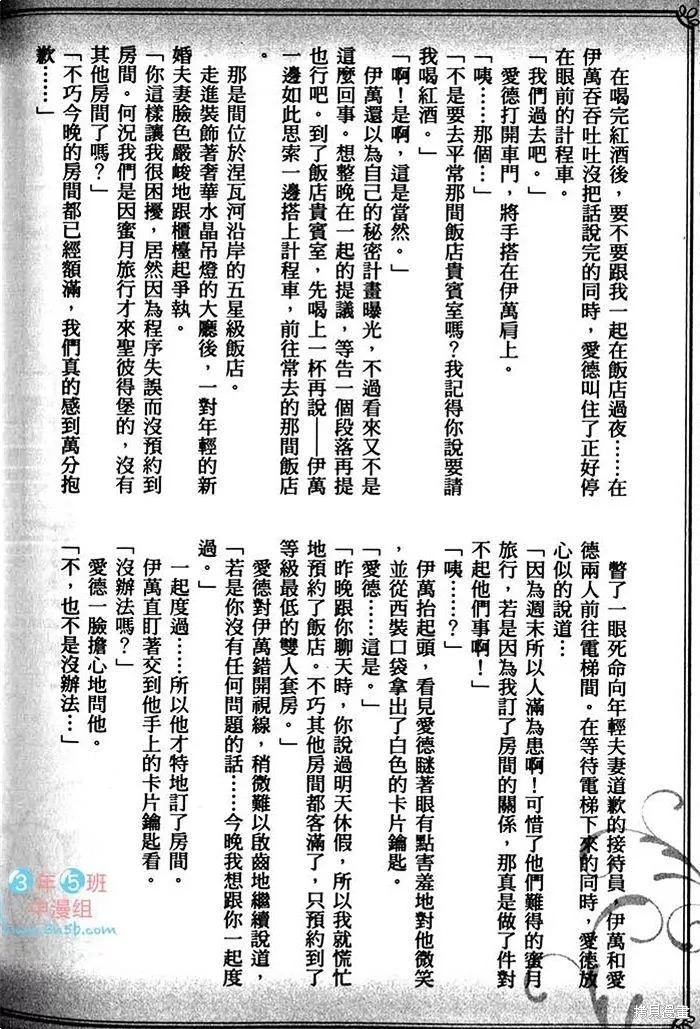 在喝完紅酒後，要不要跟我一起在飯店過夜……在
伊萬吞吞吐吐沒把話說完的同時，愛德叫住了正好停
在眼前的計程車。
「我們過去吧。」
愛德打開車門，將手搭在伊萬肩上。
「咦……那個…」
「不是要去平常那間飯店貴賓室嗎？我記得你說要請
我喝紅酒。」
「啊！是啊，這是當然。」
伊萬還以為自己的秘密計畫曝光，不過看來又不是
這麼回事。想整晚在一起的提議，等告一個段落再提
也行吧。到了飯店貴賓室，先喝上一杯再說——伊萬
一邊如此思索一邊搭上計程車，前往常去的那間飯店
。
那是間位於涅瓦河沿岸的五星級飯店。
走進裝飾著奢華水晶吊燈的大廳後，一對年輕的新
婚夫妻臉色嚴峻地跟櫃檯起爭執。
「你這樣讓我很困擾，居然因為程序失誤而沒預約到
房間。何況我們是因蜜月旅行才來聖彼得堡的，沒有
其他房間了嗎？」
「不巧今晚的房間都已經額滿，我們真的感到萬分抱
歉……」
瞥了一眼死命向年輕夫妻道歉的接待員，伊萬和愛
德兩人前往電梯間。在等待電梯下來的同時，愛德放
心似的說道…
「因為週末所以人滿為患啊！可惜了他們難得的蜜月
旅行，若是因為我訂了房間的關係，那真是做了件對
不起他們事啊！」
「咦……？」
伊萬抬起頭，看見愛德瞇著眼有點害羞地對他微笑
，並從西裝口袋拿出了白色的卡片鑰匙。
「愛德……這是。」
「昨晚跟你聊天時，你說過明天休假，所以我就慌忙
地預約了飯店。不巧其他房間都客滿了，只預約到了
等級最低的雙人套房。」
愛德對伊萬錯開視線，稍微難以啟齒地繼續說道，
「若是你沒有任何問題的話……今晚我想跟你一起度
過。」
一起度過……所以他才特地訂了房間。
伊萬直盯著交到他手上的卡片鑰匙看。
「沒辦法嗎？」
愛德一臉擔心地問他。
「不，也不是沒辦法…」
3年5班
中漫组
www.3n5b.com
拷貝漫畫